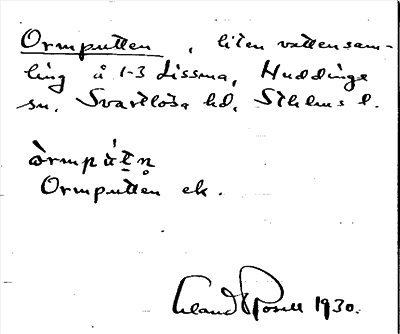 Ormputten , liten vattensam-
ling å 1-3 Lissma, Huddinge
sn. Svartlösa hd. Sthlms l.
òrmpút̲n̥
Ormputten ek.
1930.